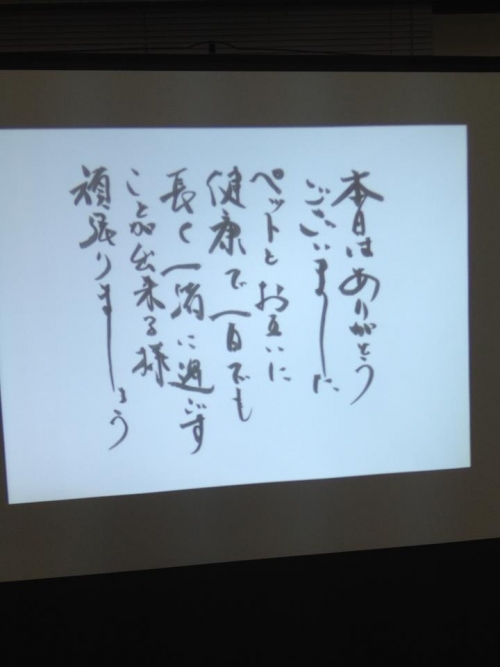 本日はありがとう
ございました
ペットとお互いに
健康で一日でも
長く一緒に過ごす
ことが出来る様
頑張りましょう